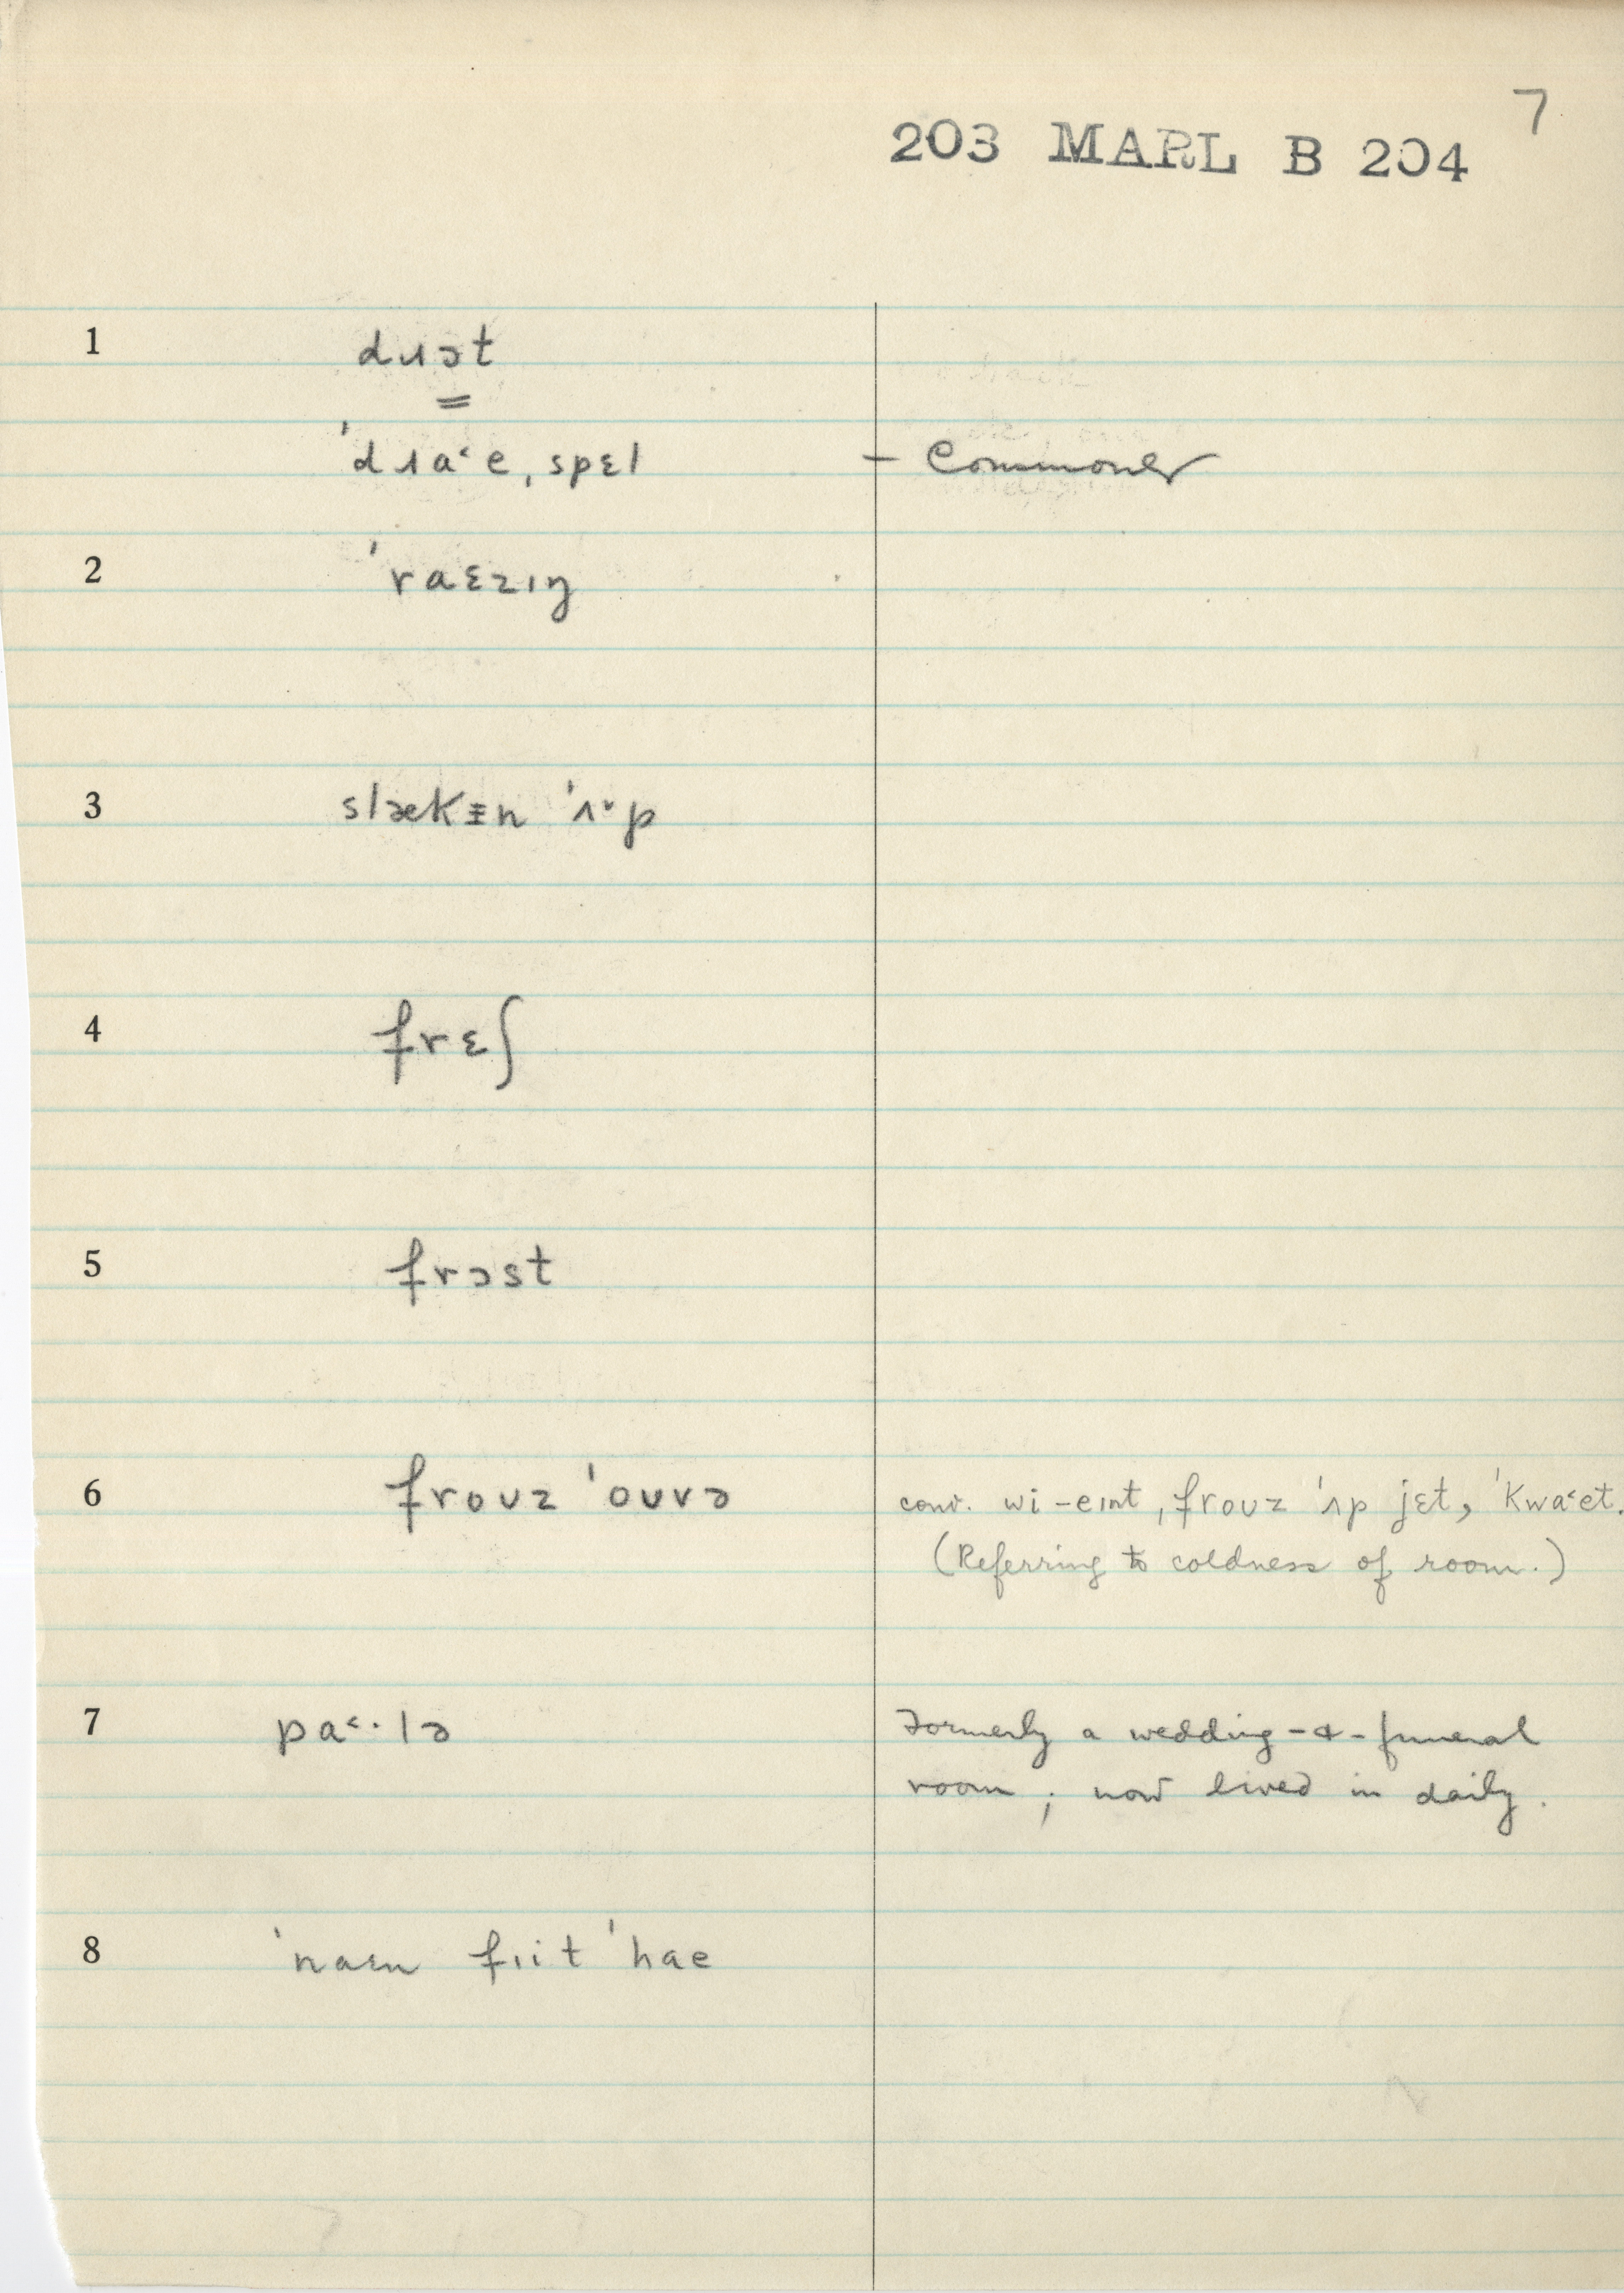 7
203 MARL B 204
1 dɹɔt
=
ˈdɹa˂e, spɛl – Commoner
2 ˈraɛzɪŋ
3 slækᵻn ˈʌ˅p
4 frɛʃ
5 frɔst
6 froʊz ˈoʊvə conv. wi-eɪnt, froʊz ˈʌp jɛt, ˈkwa˂et.
(Referring to coldness of room.)
7 pa˂·lə Formerly a wedding-&-funeral
room; now lived in daily.
8 ˈnaɛn fɪit ˈhae